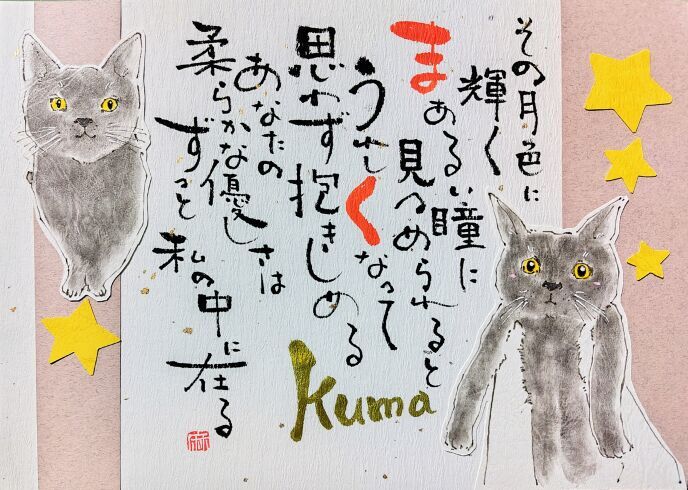 その月色に
輝く
まあるい瞳に
見つめられると
うれしくなって
思わず抱きしめる
あなたの
柔らかな優しさは
ずっと私の中に在る
Kuma